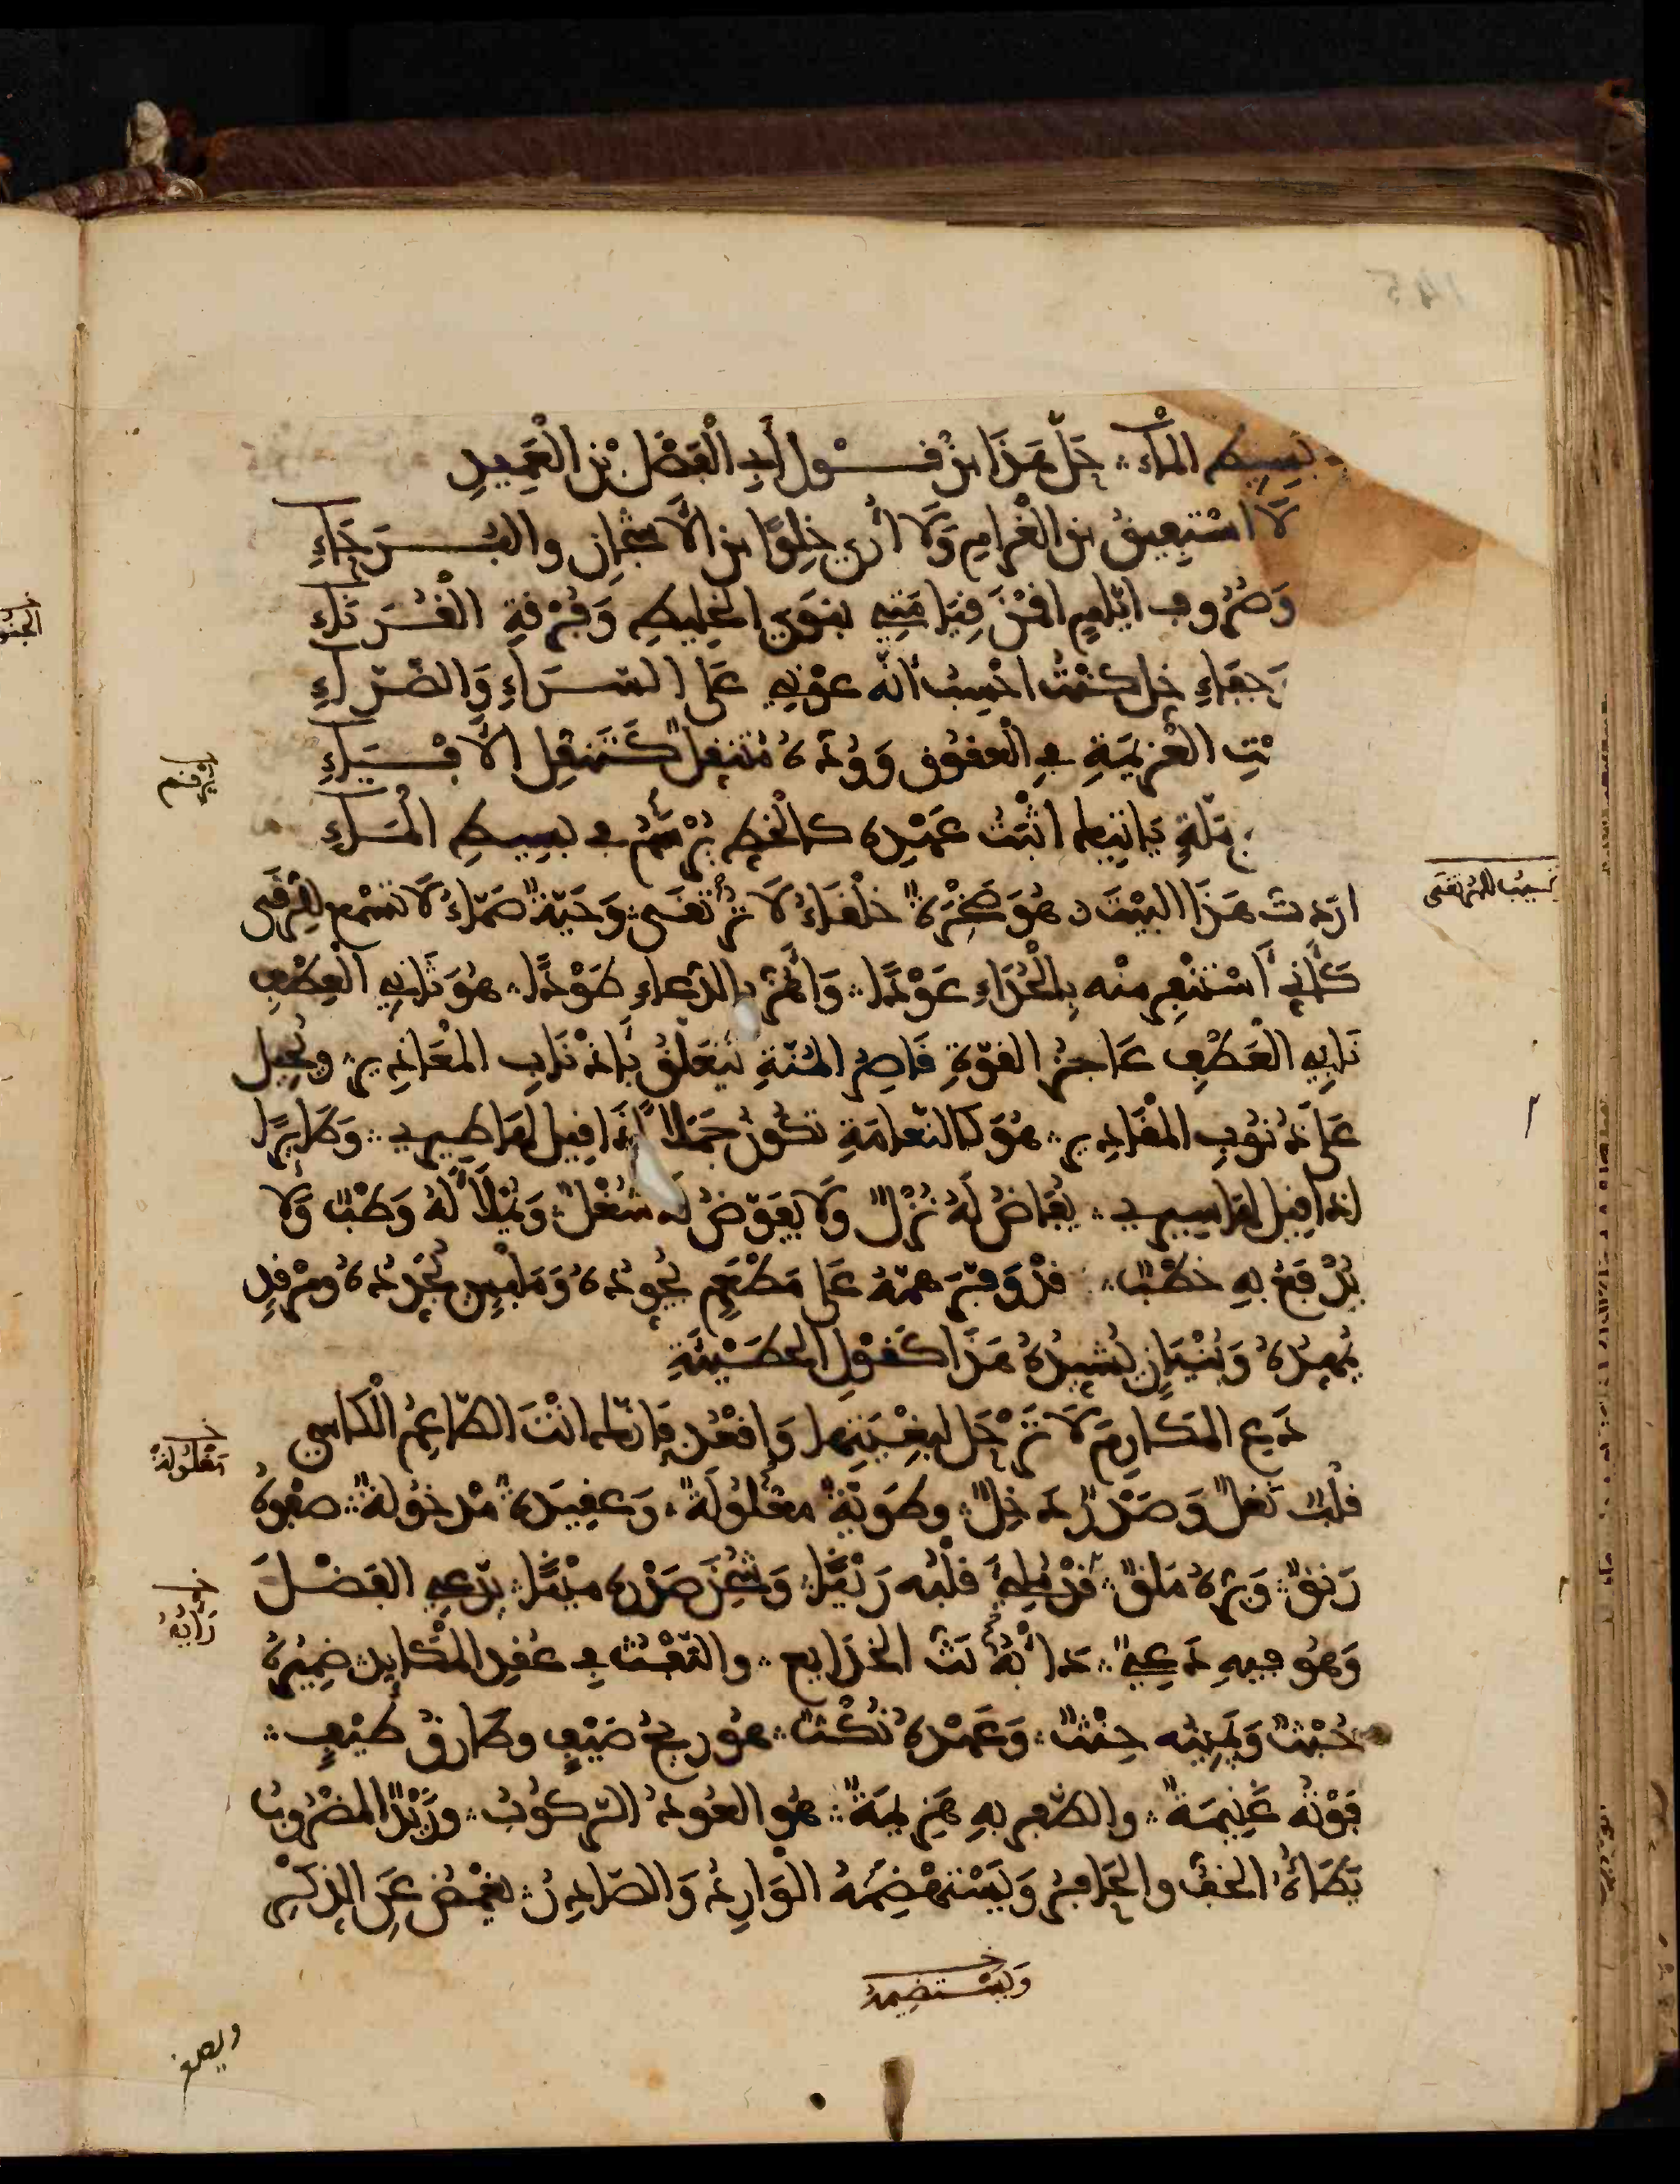 بسيط الماء ؞ حَلَّ هَذَا مِنْ قَوْلِ أَبِي الْفَضْلِ بْنِ الْعَمِيدِ
لَا اسْتَفِيقُ مِنَ الْغَرَامِ وَلَا أُرَى خِلْوًا مِنَ الْأَشْجَانِ وَالْبُرَحَاءِ
وَصُرُوفِ أَيَّامٍ أَقَمْنَ قِيَامَتِي بِنَوَى الْخَلِيطِ وَفُرْقَةِ الْقُرَنَاءِ
وَجَفَاءِ خِلٍّ كُنْتُ أَحْسِبُ أَنَّهُ عَوْنِي عَلَى السَّرَّاءِ وَالضَّرَّاءِ
ـتِ الْعَزِيمَةِ فِي الْعُقُوقِ وَوُدُّهُ مُتَنَقِّلٌ كَتَنَقُّلِ الْأَفْيَاءِ
ـمَلَّةٍ يَأْتِيكَ أَثْبَتُ عَهْدِهِ كَالْخَطِّ يُرْسَمُ فِي بَسِيطِ الْمَاءِ
يُرْقَم
أردت هَذَا الْبَيْتَ ؞ هُوَ صَخْرَةٌ خَلْقَاءُ لَا تُرْتَقَى ؞ وَحَيَّةٌ صَمَّاءُ لَا تَسْمَعُ لِلرُّقَى
تجيب للمرتقى
كَأَنِّي أَسْتَنْفِرُ مِنْهُ بِالْحُدَاءِ عَوْدًا ؞ وَأَهُزُّ بِالدُّعَاءِ طَوْدًا ؞ هُوَ ثَانِي الْعِطْفِ
نَابِي الْعَطْفِ عَاجِزُ الْقُوَّةِ قَاصِرُ الْمُنَّةِ يَتَعَلَّقُ بِأَذْنَابِ الْمَعَاذِيرِ ؞ وَيُحِيلُ
عَلَى ذُنُوبِ الْمَقَادِيرِ ؞ هُوَ كَالنَّعَامَةِ تَكُونُ جَمَلًا إِذَا قِيلَ لَهَا طِيرِي ؞ وَطَايِرًا
إِذَا قِيلَ لَهَا سِيرِي ؞ يُفَاضُ لَهُ نُزُلٌ وَلَا يُفَوَّضُ لَهُ شُغْلٌ ؞ وَيُمْلَأُ لَهُ وَطْبٌ وَلَا
يُدْفَعُ بِهِ خَطْبٌ ؞ قَدْ وَفَّرَ هَمَّهُ عَلَى مَطْعَمٍ يُجَوِّدُهُ وَمَلْبَسٍ يُجَدِّدُهُ وَمَرْقَدٍ
يُمَهِّدُهُ وَبُنْيَانٍ يُشَيِّدُهُ هَذَا كَقَوْلِ الْحُطَيْئَةِ
دَعِ الْمَكَارِمَ لَا تَرْحَلْ لِبُغْيَتِهَا وَاقْعُدْ فَإِنَّكَ أَنْتَ الطَّاعِمُ الْكَاسِي
قَلْبٌ نَغِلٌ وَصَدْرٌ دَخِلٌ ؞ وَطَوِيَّةٌ مَعْلُولَةٌ ؞ وَعَقِيدَةٌ مَدْخُولَةٌ ؞ صَفْوُهُ
خ مَغْلُولَةٌ
رَنْقٌ ؞ وَبِرُّهُ مَلَقٌ ؞ قَدْ مُلِئَ قَلْبُهُ رَيْنًا ؞ وَشُحِنَ صَدْرُهُ مَيْنًا ؞ يَدَّعِي الْفَضْلَ
وَهُوَ فِيهِ دَعِيٌّ ؞ دَأْبُهُ بَثُّ الْخَدَايِعِ ؞ وَالنَّفْثُ فِي عُقَدِ الْمَكَايِدِ ؞ ضَمِيرُهُ
خ رَأْيُهُ
خُبْثٌ وَيَمِينُهُ حِنْثٌ ؞ وَعَهْدُهُ نُكْثٌ ؞ هُوَ رِيحُ صَيْفٍ وَطَارِقُ طَيْفٍ ؞
فَوْتُهُ غَنِيمَةٌ ؞ وَالظَّفَرُ بِهِ هَزِيمَةٌ ؞ هُوَ الْعُودُ الْمَرْكُوبُ ؞ وَزَيْدٌ الْمَضْرُوبُ
يَطَأُهُ الْخُفُّ وَالْحَافِرُ وَيَسْتَهْضِمُهُ الْوَارِدُ وَالصَّادِرُ ؞ يَغْمُضُ عَنِ الذِّكْرِ
خ وَيَسْتَضِيمُهُ
ويصغر